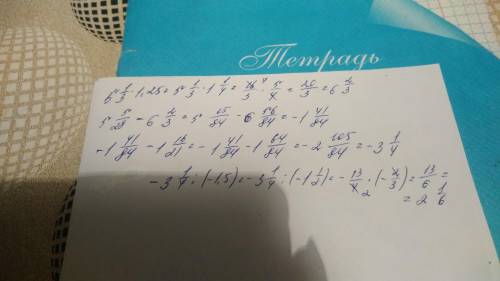 Тетрадь
5 1/3 · 1,25 = 5 1/3 · 1 1/4 = 16/3 · 5/4 = 20/3 = 6 2/3
5 5/28 - 6 2/3 = 5 15/84 - 6 56/84 = -1 41/84
-1 41/84 - 1 16/21 = -1 41/84 - 1 64/84 = -2 105/84 = -3 1/4
-3 1/4 : (-1,5) = -3 1/4 : (-1 1/2) = -13/4 2 · (-2/3) = 13/6 =
= 2 1/6